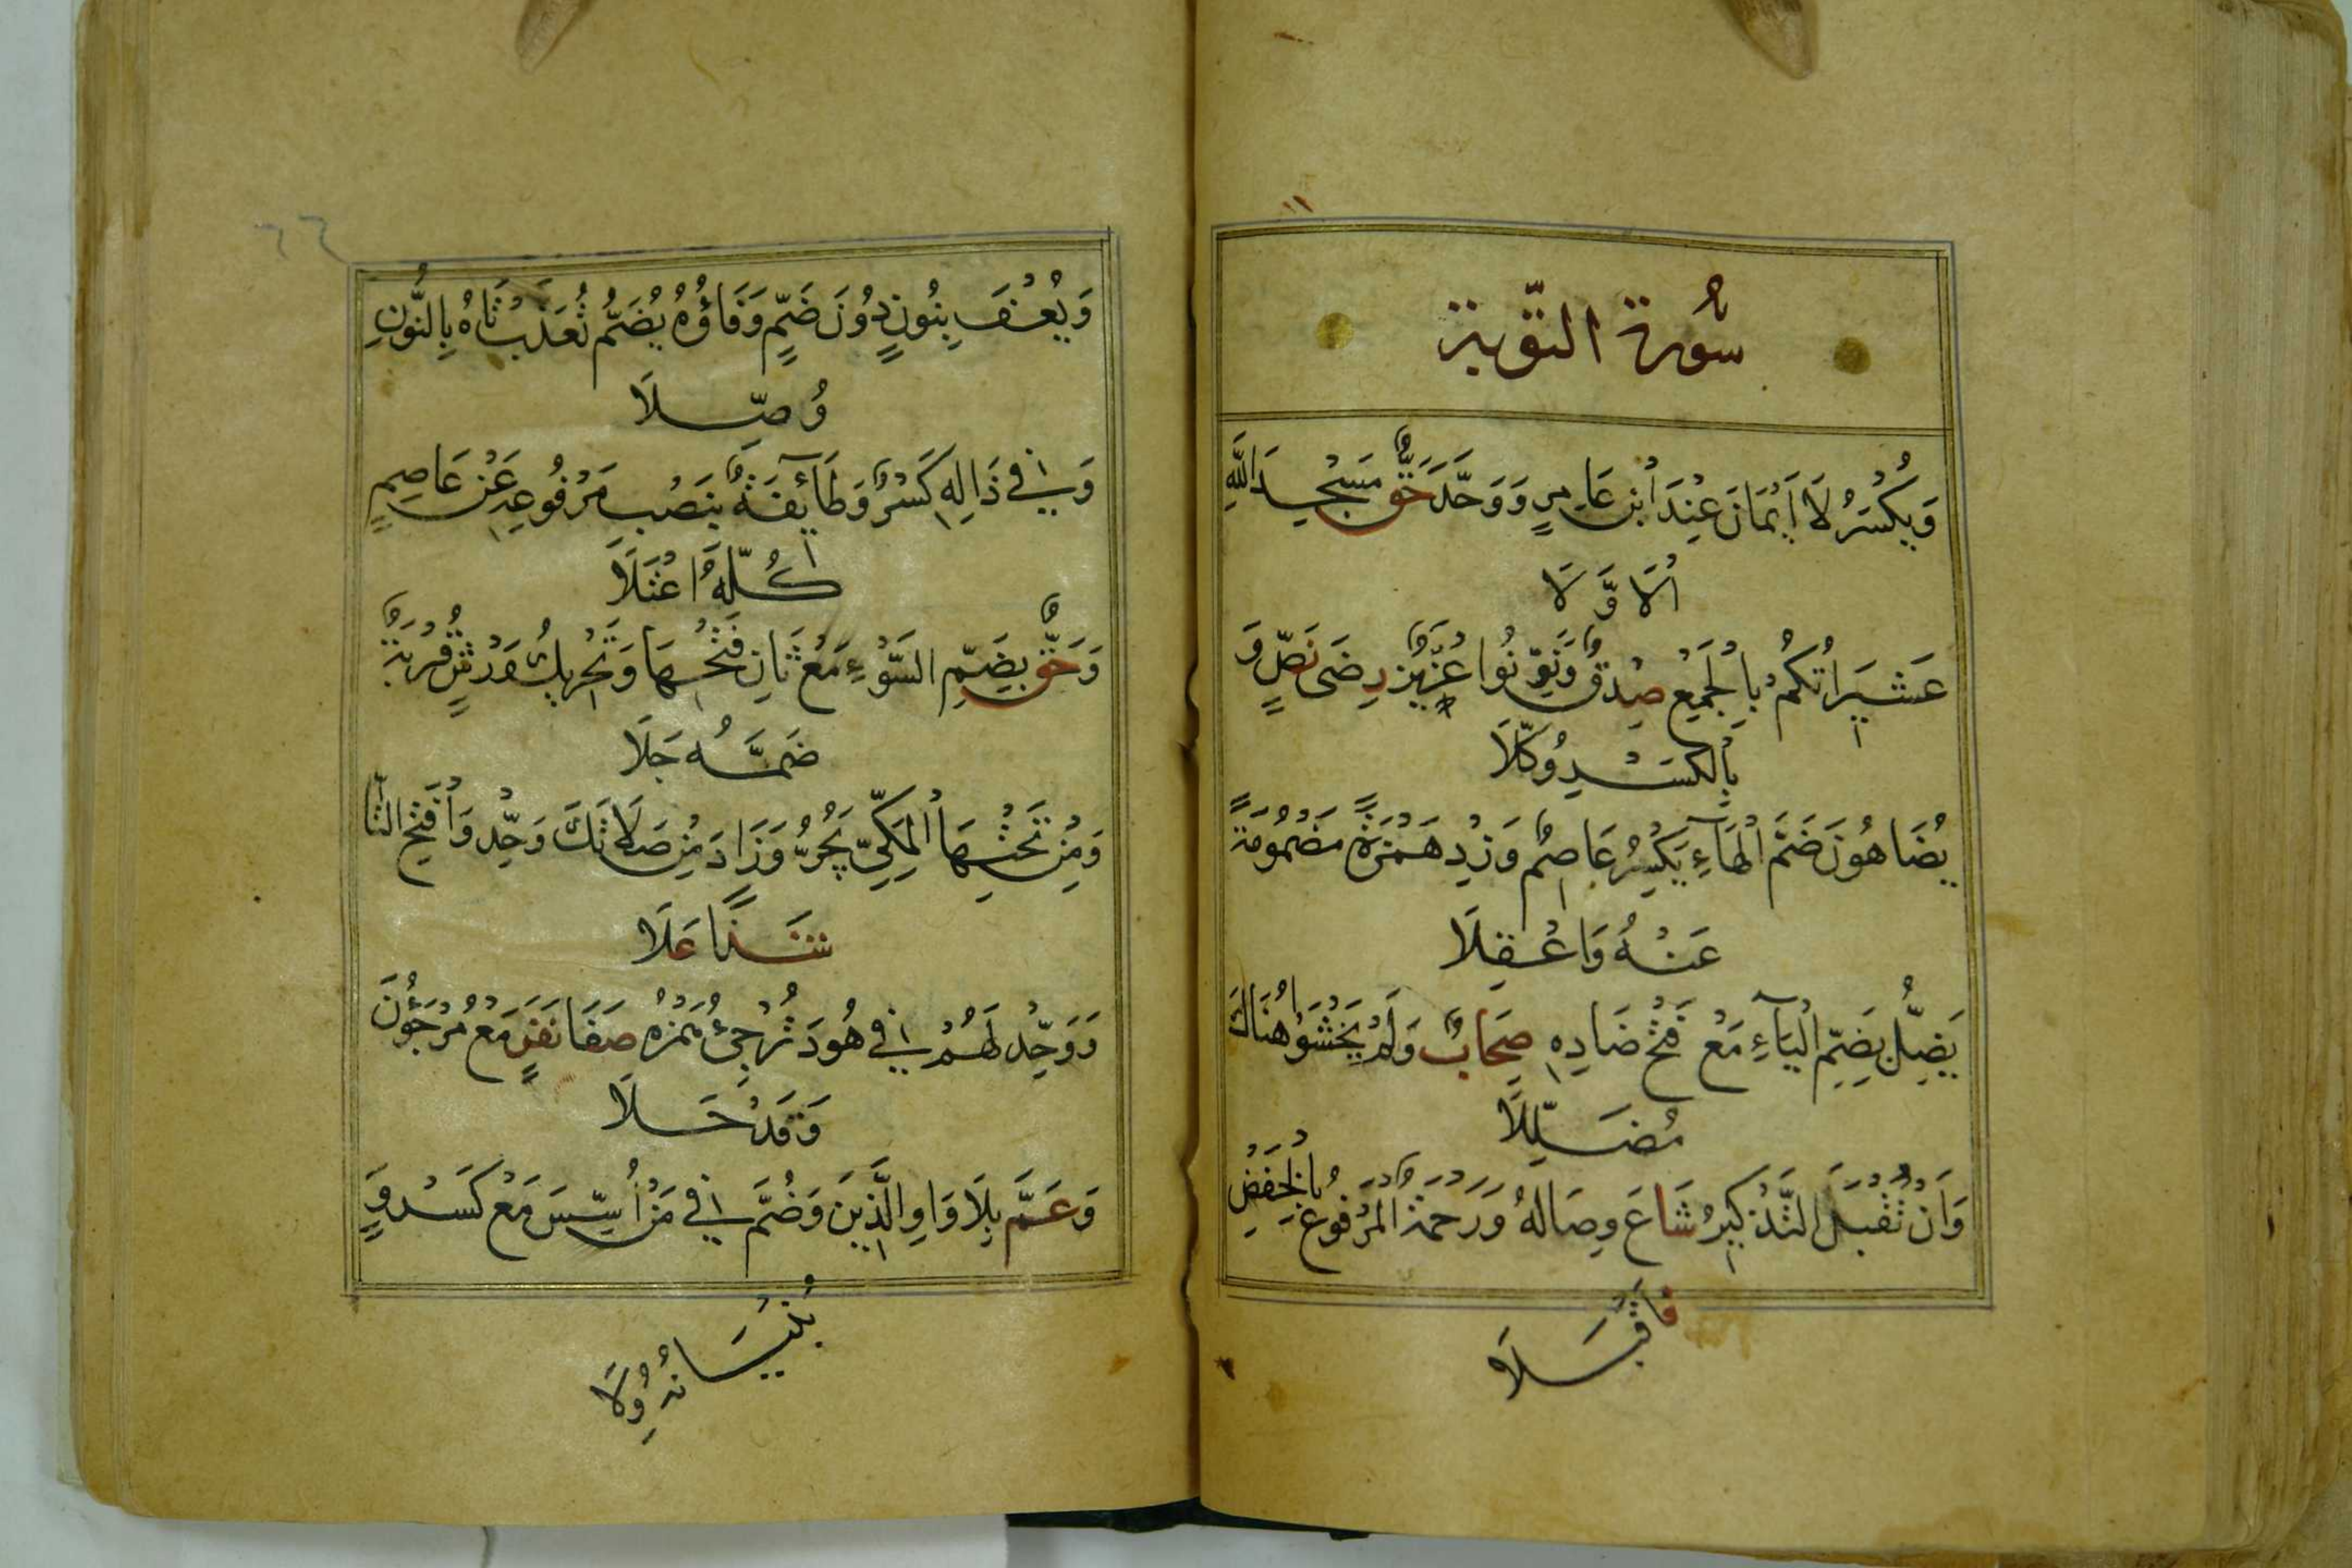 سُورة التَّوبة
وَيُكْسَرُ لَا أَيْمَانَ عِنْدَ ابْنِ عَامِرٍ وَوَحَّدَ حَقٌّ مَسْجِدَ اللَّهِ
الْاَوَّلَا
عَشِيرَاتُكُمْ بِالْجَمْعِ صِدْقٌ وَنَوِّنُوا عُزَيْرٌ رِضَى نَصٍّ وَ
بِالْكَسْرِ وُكِّلَا
يُضَاهُونَ ضَمَّ الْهَاءِ يَكْسِرُ عَاصِمٌ وَزِدْ هَمْزَةً مَضْمُومَةً
عَنْهُ وَاعْقِلَا
يَضِلُّ بِضَمِّ الْيَاءِ مَعْ فَتْحِ ضَادِهِ صِحَابٌ وَلَمْ يَخْشَوْا هُنَاكَ
مُضَلِّلَا
وَأَنْ تُقْبَلَ التَّذْكِيرُ شَاعَ وِصَالُهُ وَرَحْمَةٌ الْمَرْفُوعُ بِالْخَفْضِ
فَاقْبَلَا
٦٦
وَيُعْفَ بِنُونٍ دُونَ ضَمٍّ وَفَاؤُهُ يُضَمُّ تُعَذَّبْ تَاهُ بِالنُّونِ
وُصِّلَا
وَفِي ذَالِهِ كَسْرٌ وَطَائِفَةٌ بِنَصْبِ مَرْفُوعِهِ عَنْ عَاصِمٍ
كُلُّهُ اعْتَلَا
وَحَقٌّ بِضَمِّ السَّوْءِ مَعْ ثَانِ فَتْحِهَا وَتَحْرِيكُ وَرْشٍ قُرْبَةٌ
ضَمُّهُ جَلَا
وَمِنْ تَحْتِهَا الْمَكِّيُّ يَجُرُّ وَزَادَ مِنْ صَلَاتَكَ وَحِّدْ وَافْتَحِ التَّا
شَذًا عَلَا
وَوَحِّدْ لَهُمْ فِي هُودَ تُرْجِئُ هَمْزُهُ صَفَا نَفَرٍ مَعْ مُرْجَؤُنَ
وَقَدْ حَلَا
وَعَمَّ بِلَا وَاوِ الَّذِينَ وَضُمَّ فِي مَنْ أُسِّسَ مَعْ كَسْرٍ وَ
بُنْيَانُهُ وِلَا